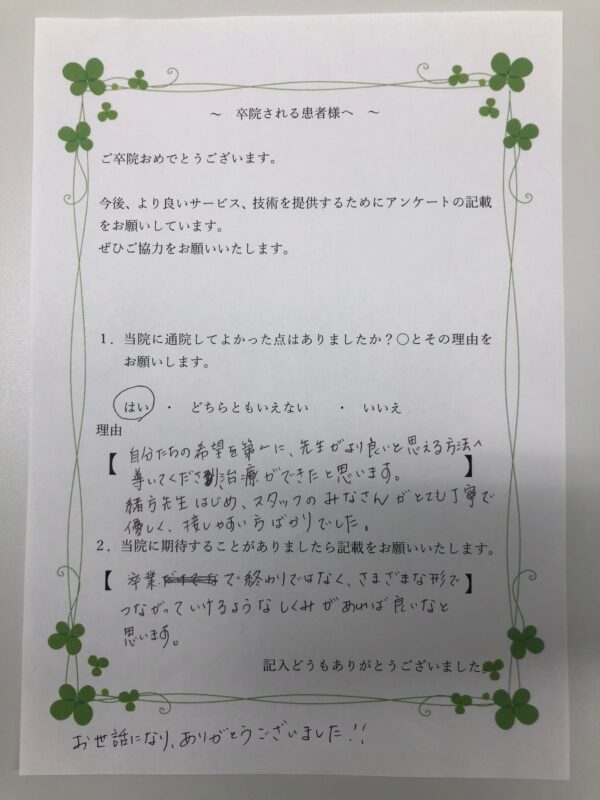 ～ 卒院される患者様へ ～
ご卒院おめでとうございます。
今後、より良いサービス、技術を提供するためにアンケートの記載
をお願いしています。
ぜひご協力をお願いいたします。
1．当院に通院してよかった点はありましたか？〇とその理由を
お願いします。
はい ・ どちらともいえない ・ いいえ
理由
【自分たちの希望を第一に、先生がより良いと思える方法へ
導いてくださり、治療ができたと思います。】
緒方先生はじめ、スタッフのみなさんがとても丁寧で
優しく、接しやすい方ばかりでした。
2．当院に期待することがありましたら記載をお願いいたします。
【卒業で終わりではなく、さまざまな形で】
つながっていけるようなしくみがあれば良いなと
思います。
記入どうもありがとうございました。
お世話になり、ありがとうございました！！